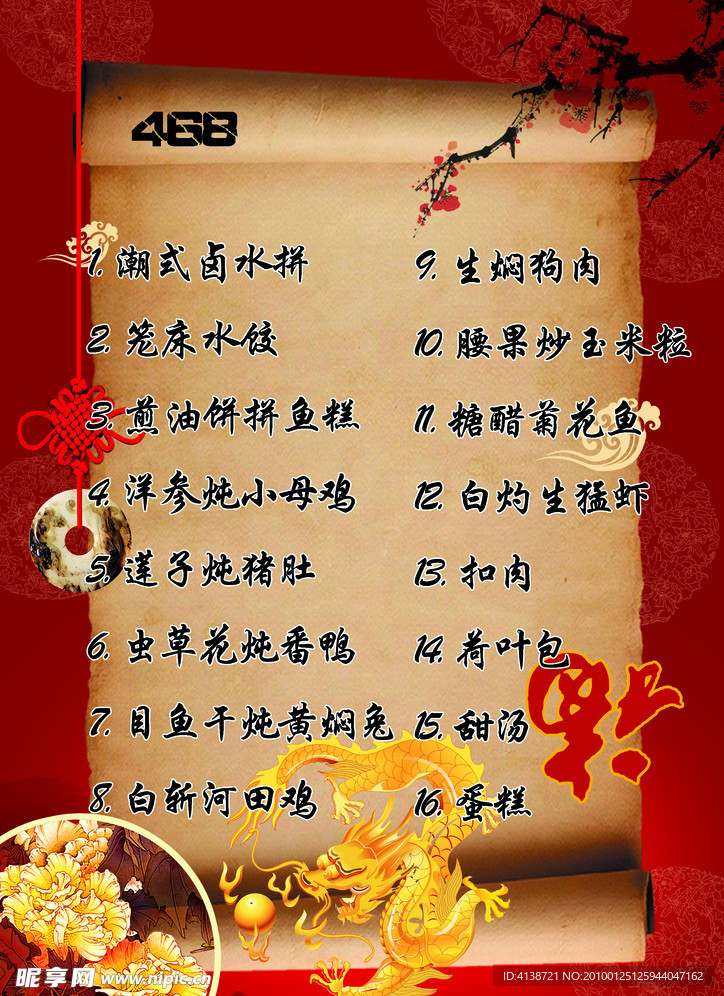 468
1. 潮式卤水拼
2. 笼床水饺
3. 煎油饼拼鱼糕
4. 洋参炖小母鸡
5. 莲子炖猪肚
6. 虫草花炖番鸭
7. 目鱼干炖黄焖兔
8. 白斩河田鸡
9. 生焖狗肉
10. 腰果炒玉米粒
11. 糖醋菊花鱼
12. 白灼生猛虾
13. 扣肉
14. 荷叶包
15. 甜汤
16. 蛋糕
福
昵享网 www.nipic.cn
ID:4138721 NO:20100125125944047162